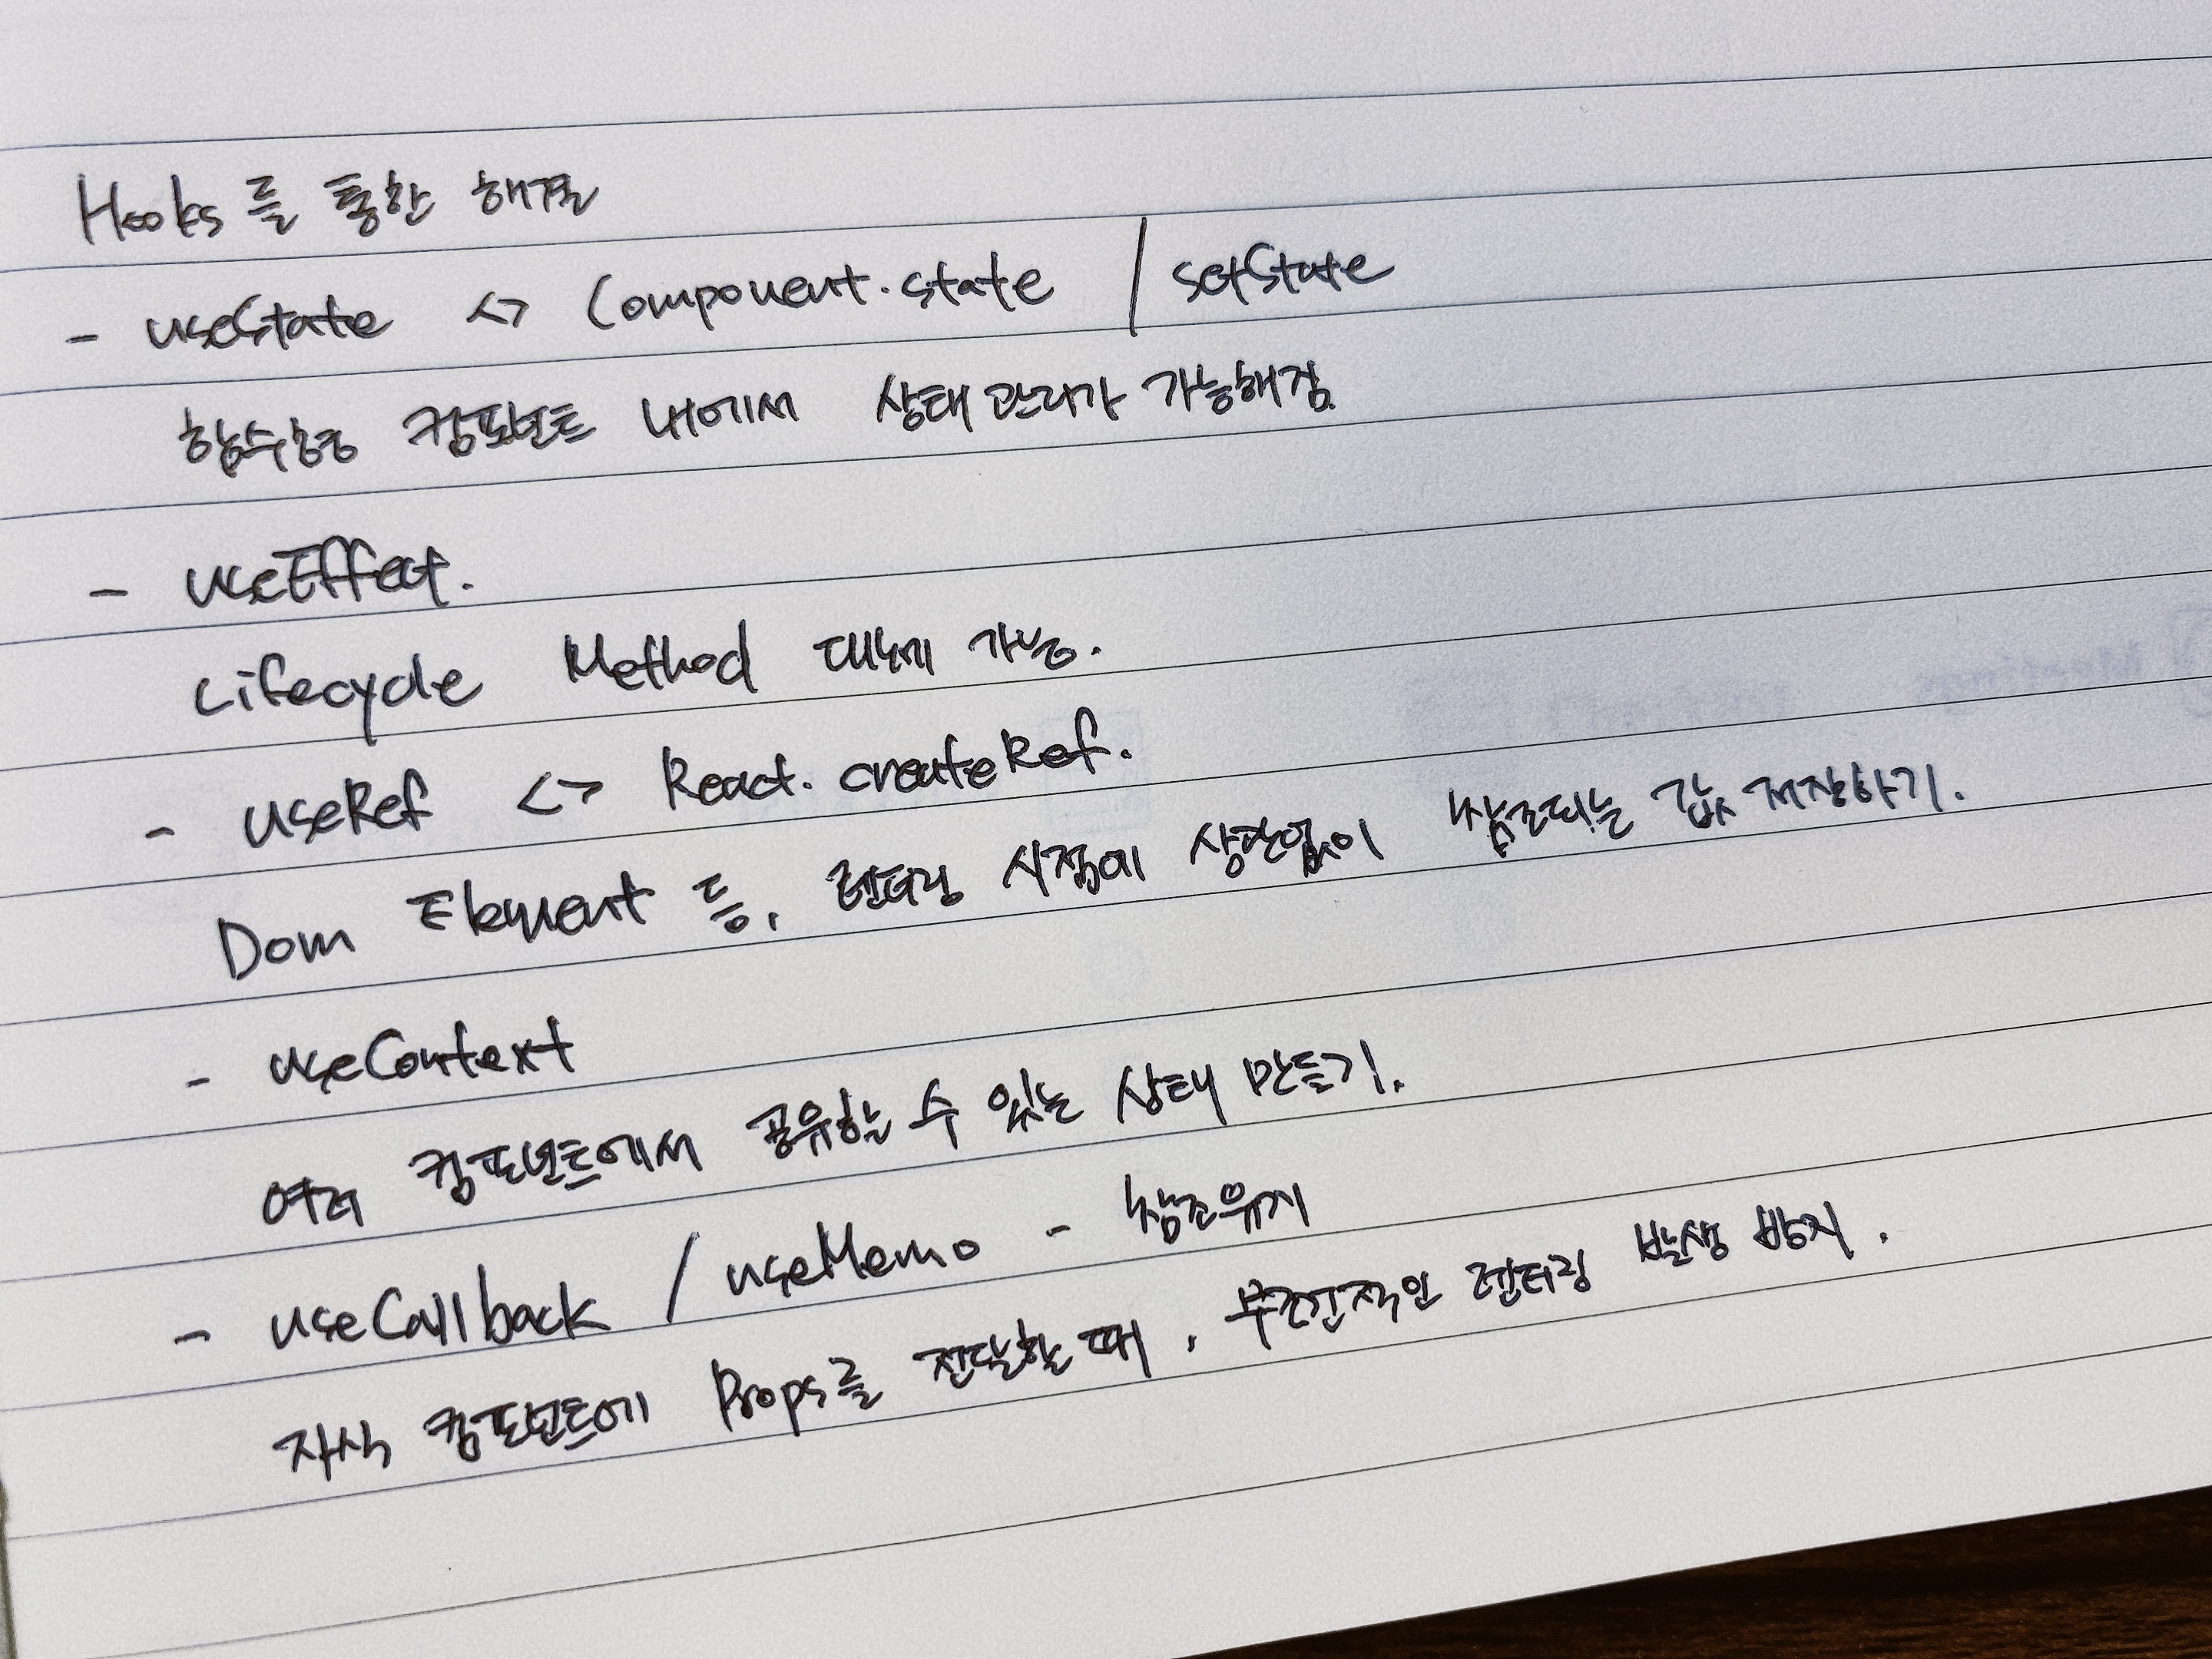 Hooks를 통한 해결
- useState <> Component.state / setState
함수형 컴포넌트 내에서 상태 관리가 가능해짐.
- useEffect.
Lifecycle Method 대체 가능.
- useRef <> React.createRef.
Dom Element 등, 렌더링 시점에 상관없이 참조되는 값 저장하기.
- useContext
여러 컴포넌트에서 공유할 수 있는 상태 만들기.
- useCallback / useMemo - 참조유지
자식 컴포넌트에 Props를 전달할 때, 무조건적인 렌더링 발생 방지.